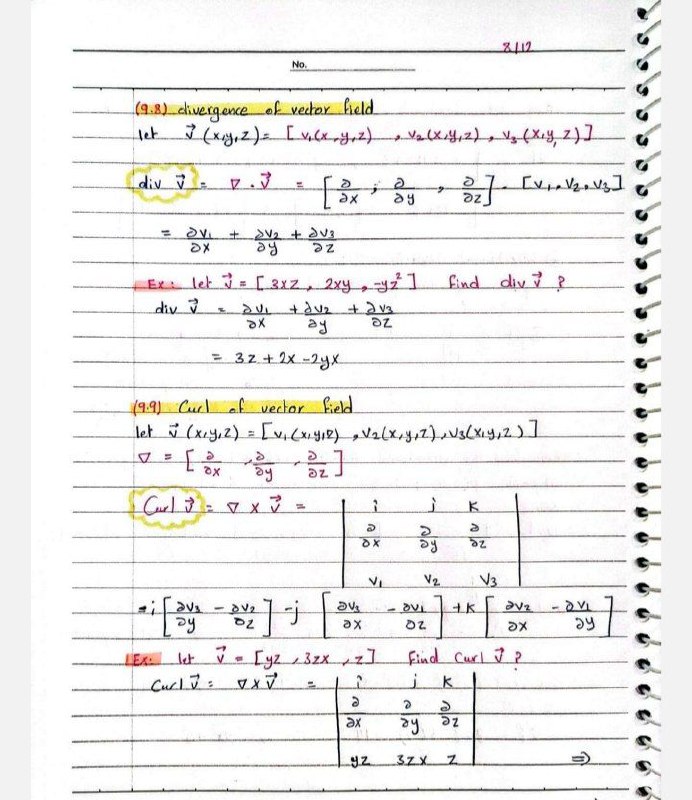 8/12
No.
(9.8) divergence of vector field
let v⃗ (x,y,z) = [ v₁(x,y,z) , v₂(x,y,z) , v₃(x,y,z) ]
div v⃗ = ∇ . v⃗ = [ ∂/∂x , ∂/∂y , ∂/∂z ] . [v₁, v₂, v₃]
= ∂v₁/∂x + ∂v₂/∂y + ∂v₃/∂z
Ex: let v⃗ = [ 3xz , 2xy , -yz² ] find div v⃗ ?
div v⃗ = ∂v₁/∂x + ∂v₂/∂y + ∂v₃/∂z
= 3z + 2x - 2yx
(9.9) Curl of vector field
let v⃗ (x,y,z) = [v₁(x,y,z) , v₂(x,y,z) , v₃(x,y,z) ]
∇ = [ ∂/∂x , ∂/∂y , ∂/∂z ]
Curl v⃗ = ∇ x v⃗ = | i j k
∂/∂x ∂/∂y ∂/∂z
v₁ v₂ v₃ |
= i [ ∂v₃/∂y - ∂v₂/∂z ] - j [ ∂v₃/∂x - ∂v₁/∂z ] + k [ ∂v₂/∂x - ∂v₁/∂y ]
Ex: let v⃗ = [yz , 3zx , z] find curl v⃗ ?
Curl v⃗ = ∇ x v⃗ = | i j k
∂/∂x ∂/∂y ∂/∂z
yz 3zx z | ⇒